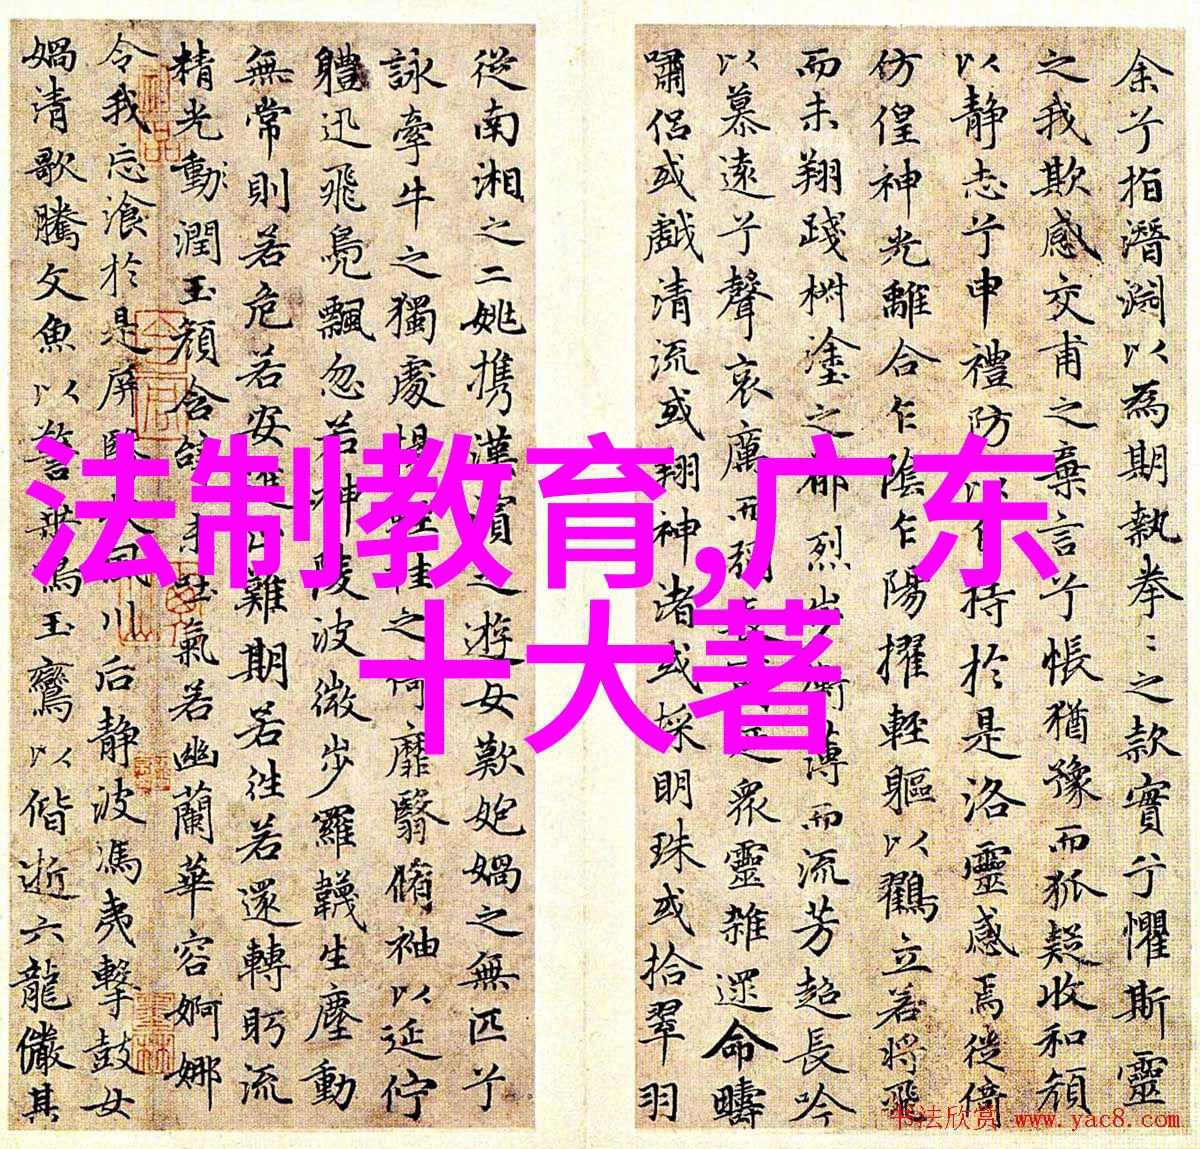 余兮指潛淵以為期執拳〻之款實兮懼斯靈
之我欺感交甫之棄言兮悵猶豫而狐疑收和顔
以静志兮申禮防以自持於是洛靈感焉徙倚
仿偟神光離合乍陰乍陽擢輕軀以鶴立若將飛
而未翔踐椒塗之郁烈步蘅薄而流芳超長吟
以慕遠兮聲哀厲而彌長爾迺眾靈雜遝命疇
嘯侶或戲清流或翔神渚或採明珠或拾翠羽
從南湘之二姚攜漢濱之遊女歎匏媧之無匹兮
詠牽牛之獨處揚輕袿之猗靡翳脩袖以延佇
體迅飛鳧飄忽若神陵波微步羅韈生塵動
無常則若危若安進止難期若往若還轉眄流
精光動潤玉顏含辭未吐氣若幽蘭華容婀娜
令我忘湌於是屏翳收風川后静波馮夷擊鼓女
媧清歌騰文魚以警乘鳴玉鸞以偕逝六龍儼其
法制教育,广东
十大著
书法欣赏 www.yac8.com